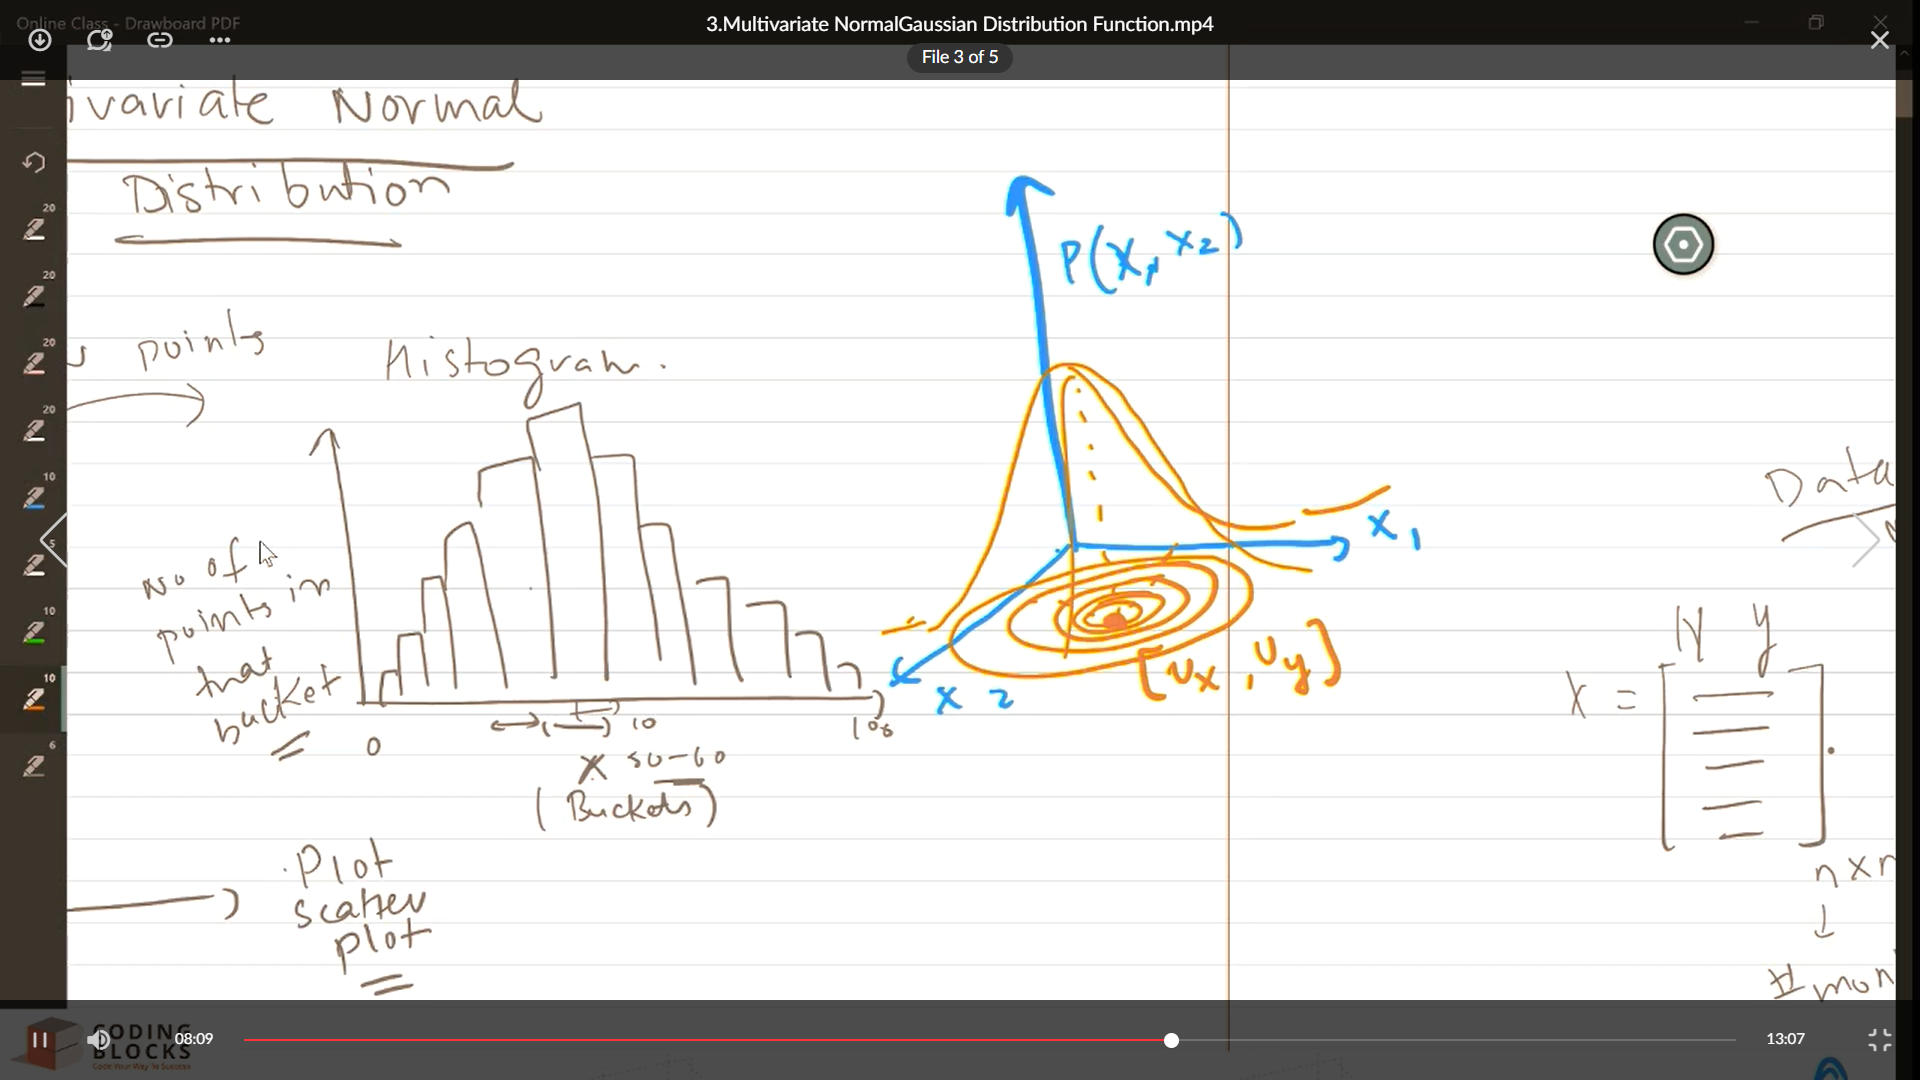 Online Class - Drawboard PDF
3.Multivariate NormalGaussian Distribution Function.mp4
File 3 of 5
ivariate Normal
Distribution
20
20
20
20
10
5
10
10
6
points
Histogram.
No of
points in
that
bucket
0
10
100
X 50-60
(Buckets)
Plot
scatter
plot
P(X1, X2)
X1
X2
[Ux, Uy]
Data
y
X =
#mon
CODING
BLOCKS
Code Your Way To Success
08:09
13:07